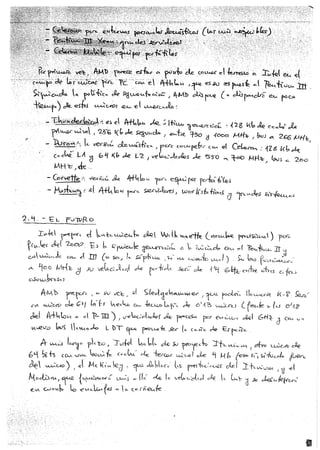 - Celeron: para entornos personales domésticos (las más asequibles)
- Pentium III Xeon: grandes servidores
- Celeron Mobile: equipos portátiles
Por primera vez, AMD parece estar a punto de comer el terreno a Intel en el
campo de las unidades para PC con el Athlon, que es su respuesta al Pentium III.
Siguiendo la política de segmentación, AMD dispone (o dispondrá en poco
tiempo) de estas unidades en el mercado:
- Thunderbird: es el Athlon de última generación: 128 Kb de caché de
primer nivel, 256 Kb de segundo, entre 750 y 1000 MHz, bus a 266 MHz.
- Duron: la versión doméstica, para competir con el Celeron: 128 Kb de
caché L1 y 64 Kb de L2, velocidades de 550 a 700 MHz, bus a 200
MHz, etc.
- Corvette: versión de Athlon para equipos portátiles
- Mustang: el Athlon para servidores, workstations y grandes sistemas
2.4. - EL FUTURO
Intel prepara el lanzamiento del Willamette (nombre provisional) para
finales del 2000. Es la siguiente generación a la iniciada con el Pentium II y
culminada con el III
a 400 MHz y su velocidad de partida será de 1,4 GHz entre otras
AMD prepara, a su vez, el Sledgehammer, que podría llamarse K-8. Será
una unidad de 64 bits hecha en tecnología de 0'13 micras (frente a las 0'18
del Athlon o el P-III), velocidades de proceso por encima del GHz y con un
nuevo bus llamado LDT que promete ser la caña de España.
A más largo plazo, Intel habla de su proyecto Itanium, otra unidad de
64 bits con una bonita caché de tercer nivel de 4 Mb
del micro), el McKinley, que doblará las prestaciones del Itanium, y el
Madison, que funcionará